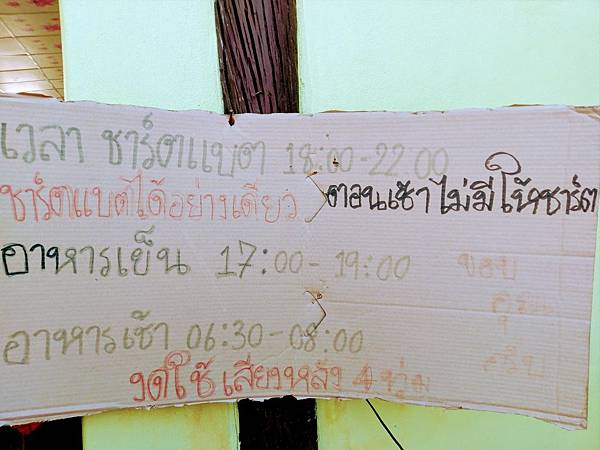 เวลา ชาร์ตแบต 18:00-22 00
ชาร์ตแบตได้อย่างเดียว
ตอนเช้า ไม่มี ให้ชาร์ต
อาหารเย็น 17:00-19:00
อาหารเช้า 06:30-08:00
งดใช้เสียงหลัง 4 ทุ่ม
ขอบ
คุณ
ครับ